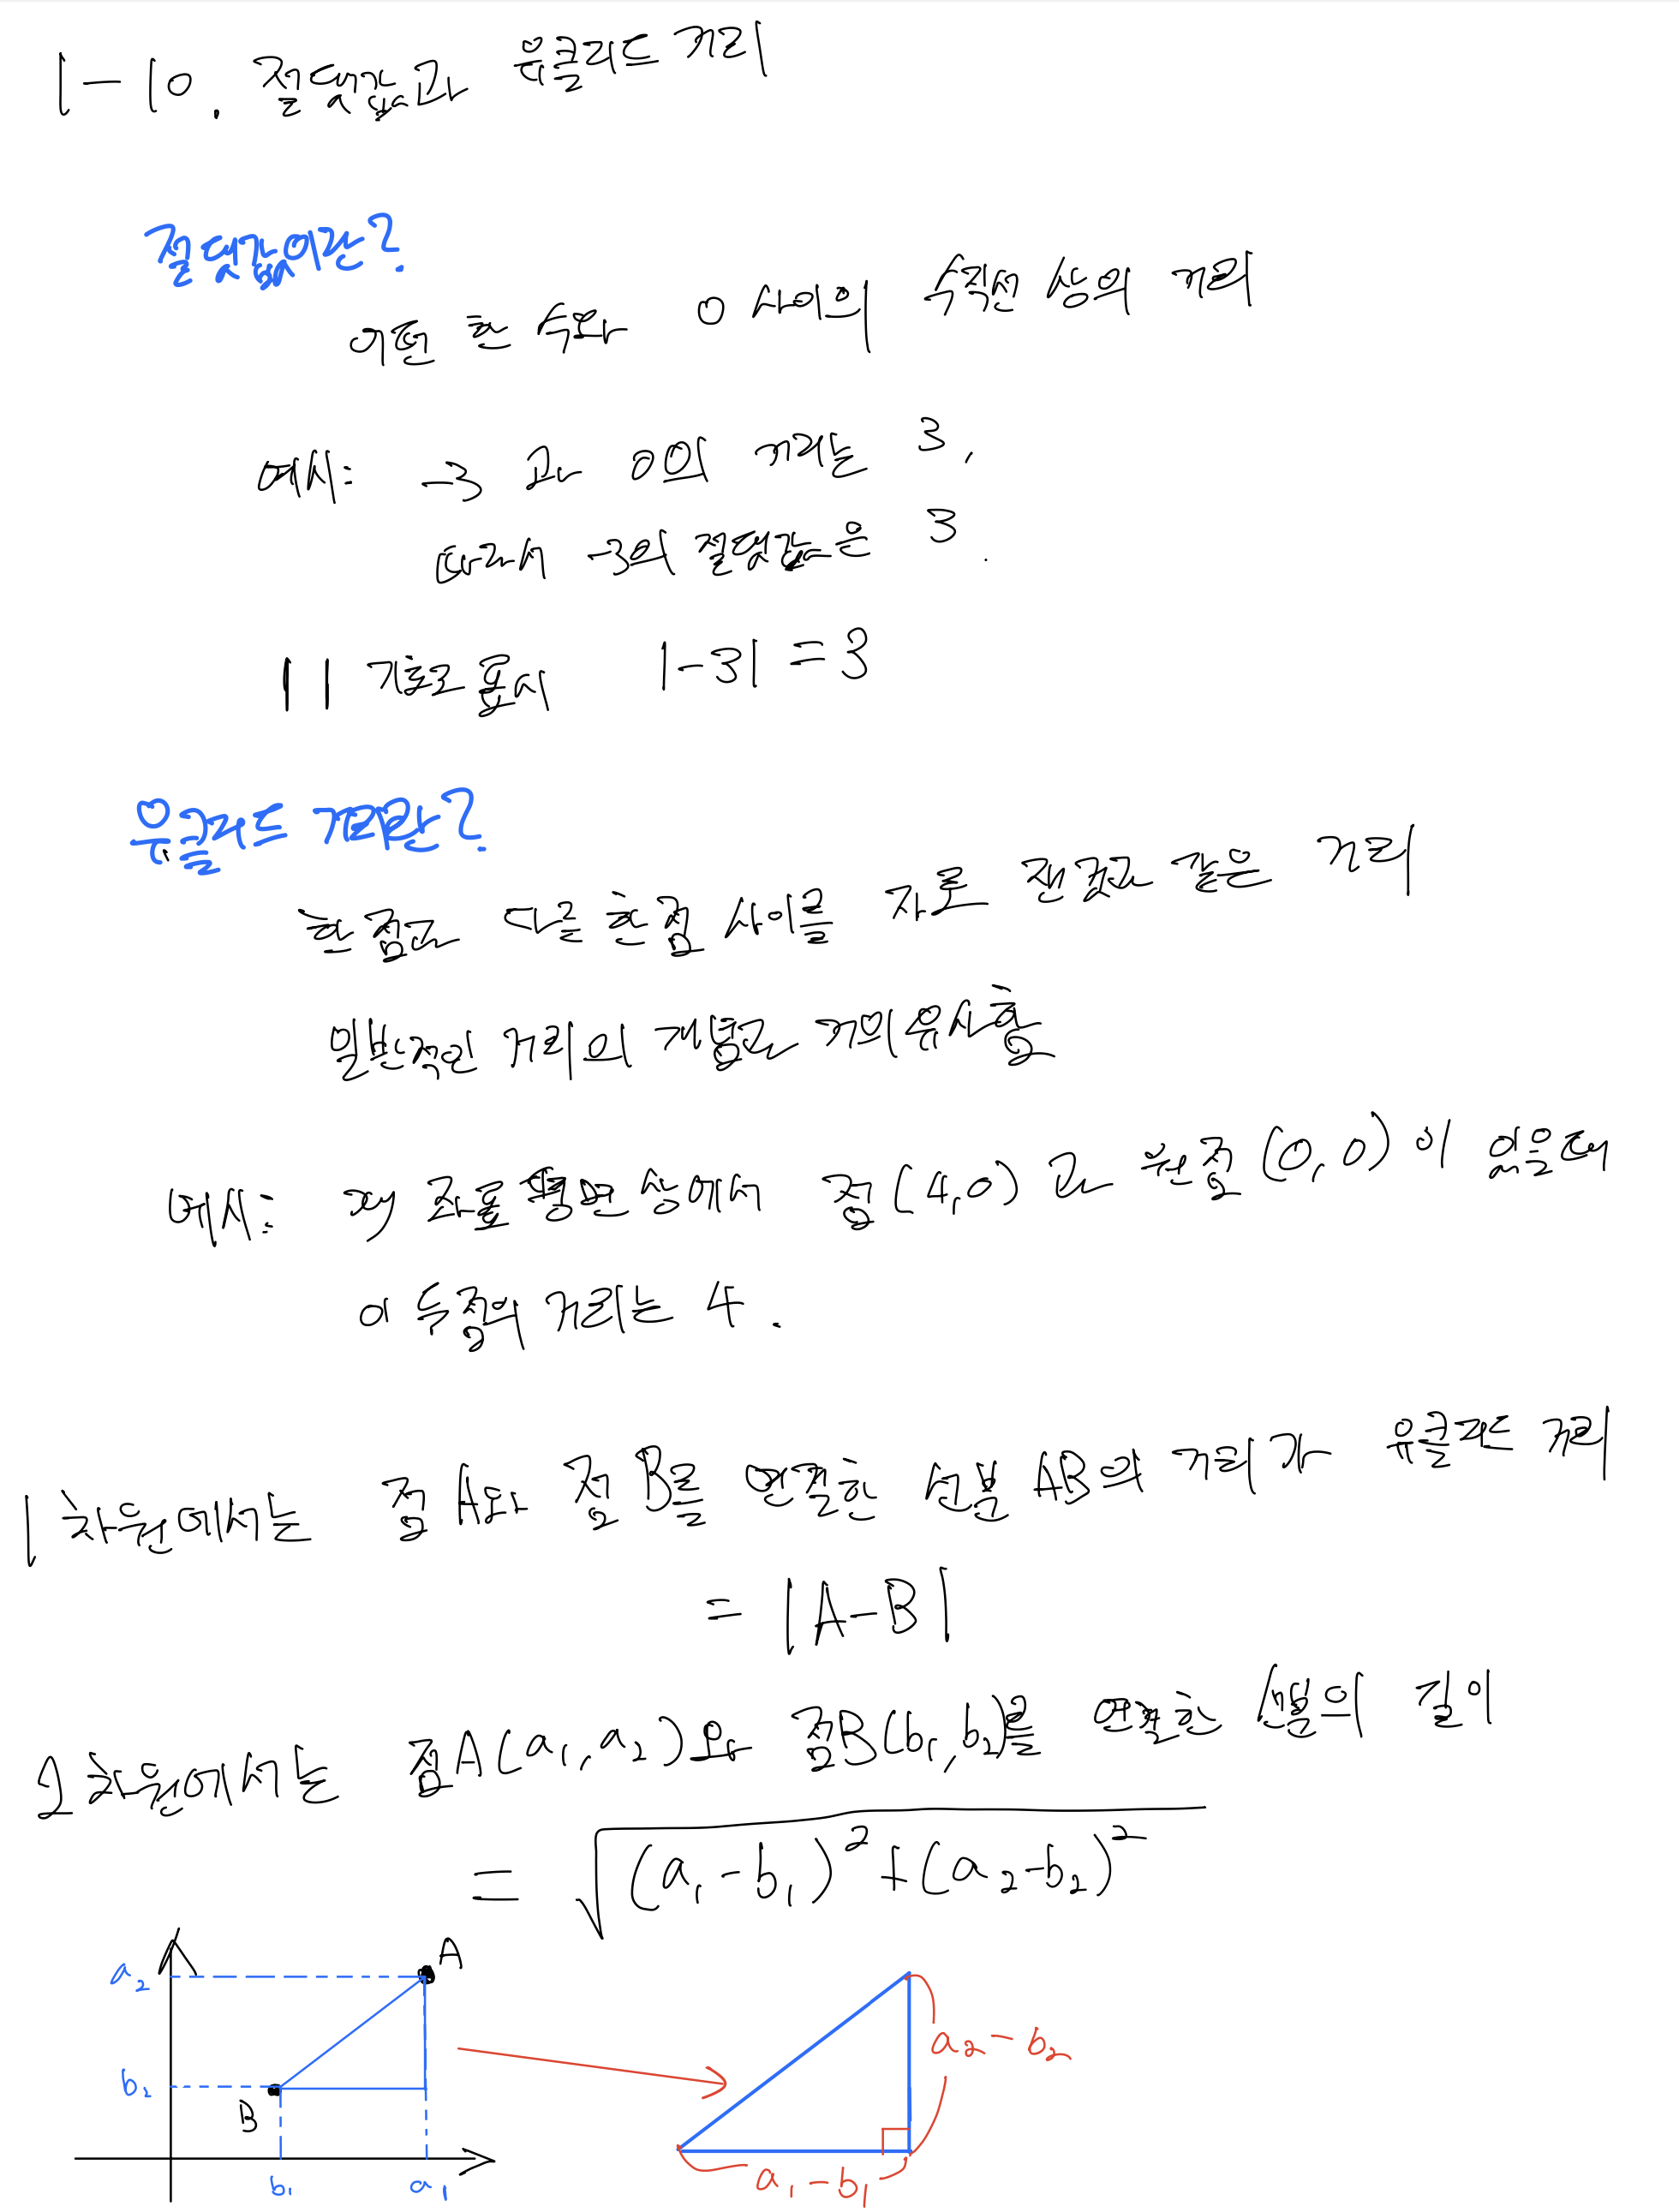 1-10. 절댓값과 유클리드 거리
절댓값이란?
어떤 한 수와 0 사이의 수직선 상의 거리
예시: -3 과 0의 거리는 3,
따라서 -3의 절댓값은 3.
| | 기호로 표시 |-3| = 3
유클리드 거리란?
한 점과 다른 한 점 사이를 자로 잰 것과 같은 거리
일반적인 거리의 개념과 거의 유사함
예시: xy 좌표평면 상에서 점(4,0) 과 원점(0,0)이 있을 때
이 두 점의 거리는 4.
1차원에서는 점 A와 점 B를 연결한 선분 AB의 거리가 유클리드 거리
= |A-B|
2차원에서는 점A(a₁,a₂)와 점B(b₁,b₂)를 연결한 선분의 길이
= √(a₁-b₁)²+(a₂-b₂)²
A
a₂
a₂-b₂
b₂
B
b₁ a₁
a₁-b₁